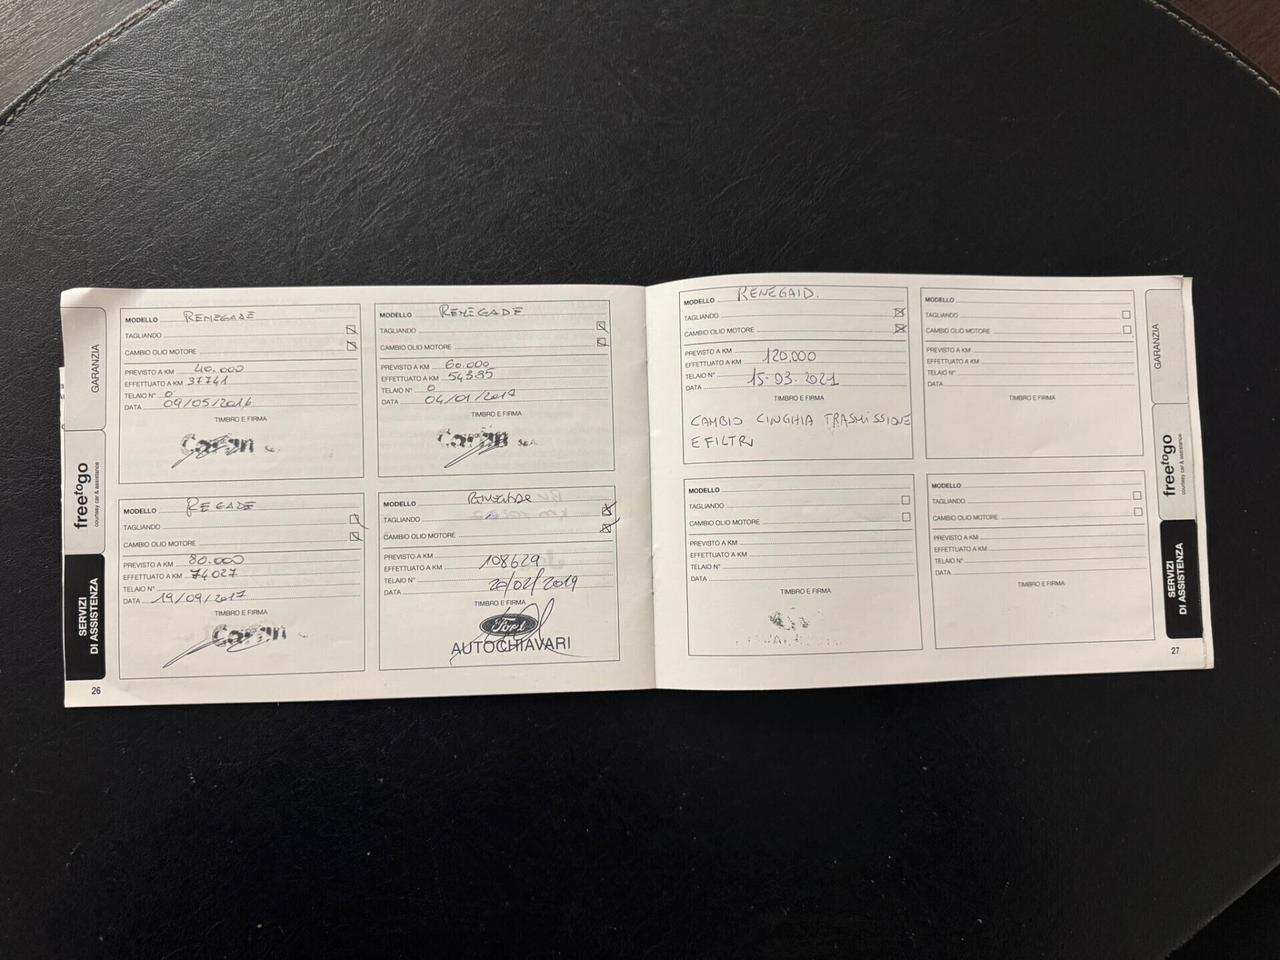 GARANZIA
freetogo
courtesy car & assistance
SERVIZI
DI ASSISTENZA
26
MODELLO RENEGADE
TAGLIANDO
CAMBIO OLIO MOTORE
PREVISTO A KM 40.000
EFFETTUATO A KM 37741
TELAIO N° 0
DATA 09/05/2016
TIMBRO E FIRMA
MODELLO RENEGADE
TAGLIANDO
CAMBIO OLIO MOTORE
PREVISTO A KM 60.000
EFFETTUATO A KM 54395
TELAIO N° 0
DATA 04/01/2017
TIMBRO E FIRMA
MODELLO REGADE
TAGLIANDO
CAMBIO OLIO MOTORE
PREVISTO A KM 80.000
EFFETTUATO A KM 74027
TELAIO N°
DATA 19/09/2017
TIMBRO E FIRMA
MODELLO RENEGADE
TAGLIANDO
CAMBIO OLIO MOTORE
PREVISTO A KM
EFFETTUATO A KM 108629
TELAIO N°
DATA 20/02/2019
TIMBRO E FIRMA
Ford
AUTOCHIAVARI
MODELLO RENEGAID.
TAGLIANDO
CAMBIO OLIO MOTORE
PREVISTO A KM
EFFETTUATO A KM 120,000
TELAIO N°
DATA 15-03-2021
TIMBRO E FIRMA
CAMBIO CINGHIA TRASMISSIONE
E FILTRI
MODELLO
TAGLIANDO
CAMBIO OLIO MOTORE
PREVISTO A KM
EFFETTUATO A KM
TELAIO N°
DATA
TIMBRO E FIRMA
MODELLO
TAGLIANDO
CAMBIO OLIO MOTORE
PREVISTO A KM
EFFETTUATO A KM
TELAIO N°
DATA
TIMBRO E FIRMA
MODELLO
TAGLIANDO
CAMBIO OLIO MOTORE
PREVISTO A KM
EFFETTUATO A KM
TELAIO N°
DATA
TIMBRO E FIRMA
GARANZIA
freetogo
courtesy car & assistance
SERVIZI
DI ASSISTENZA
27